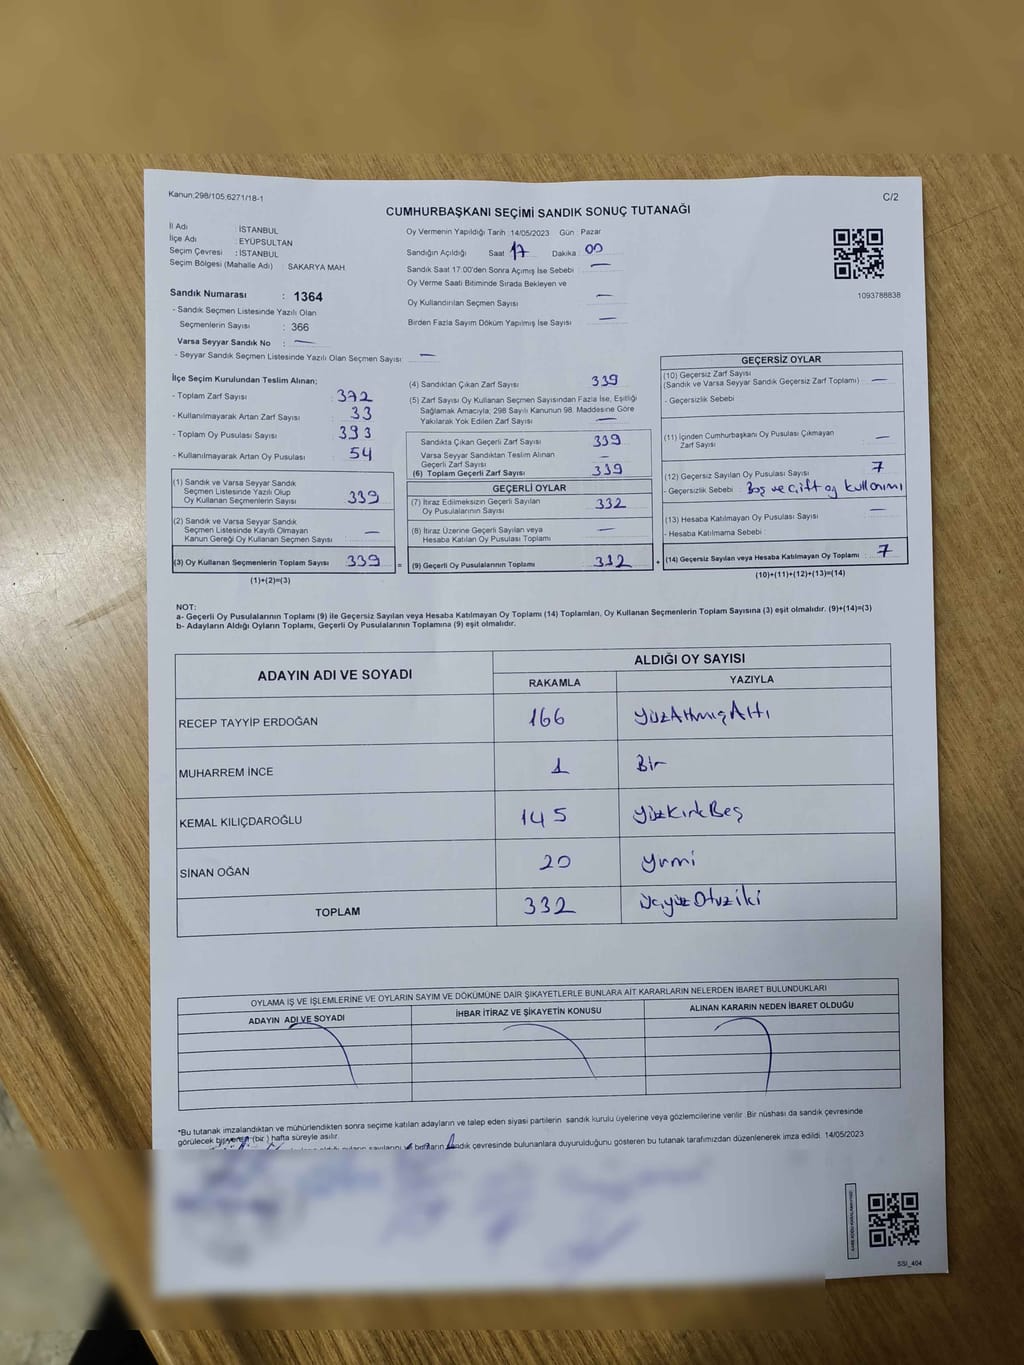 Kanun:298/105;6271/18-1
C/2
CUMHURBAŞKANI SEÇİMİ SANDIK SONUÇ TUTANAĞI
İl Adı : İSTANBUL
İlçe Adı : EYÜPSULTAN
Seçim Çevresi : İSTANBUL
Seçim Bölgesi (Mahalle Adı) : SAKARYA MAH.
Sandık Numarası : 1364
- Sandık Seçmen Listesinde Yazılı Olan
Seçmenlerin Sayısı : 366
Varsa Seyyar Sandık No : —
- Seyyar Sandık Seçmen Listesinde Yazılı Olan Seçmen Sayısı: —
Oy Vermenin Yapıldığı Tarih :14/05/2023 Gün : Pazar
Sandığın Açıldığı Saat : 17 Dakika : 00
Sandık Saat 17:00'den Sonra Açımış İse Sebebi : —
Oy Verme Saati Bitiminde Sırada Bekleyen ve
Oy Kullandırılan Seçmen Sayısı : —
Birden Fazla Sayım Döküm Yapılmış İse Sayısı : —
1093788838
İlçe Seçim Kurulundan Teslim Alınan;
- Toplam Zarf Sayısı : 372
- Kullanılmayarak Artan Zarf Sayısı : 33
- Toplam Oy Pusulası Sayısı : 393
- Kullanılmayarak Artan Oy Pusulası : 54
(1) Sandık ve Varsa Seyyar Sandık
Seçmen Listesinde Yazılı Olup
Oy Kullanan Seçmenlerin Sayısı : 339
(2) Sandık ve Varsa Seyyar Sandık
Seçmen Listesinde Kayıtlı Olmayan
Kanun Gereği Oy Kullanan Seçmen Sayısı : —
(3) Oy Kullanan Seçmenlerin Toplam Sayısı : 339
(1)+(2)=(3)
=
(4) Sandıktan Çıkan Zarf Sayısı : 339
(5) Zarf Sayısı Oy Kullanan Seçmen Sayısından Fazla İse, Eşitliği
Sağlamak Amacıyla; 298 Sayılı Kanunun 98. Maddesine Göre
Yakılarak Yok Edilen Zarf Sayısı : —
Sandıkta Çıkan Geçerli Zarf Sayısı : 339
Varsa Seyyar Sandıktan Teslim Alınan
Geçerli Zarf Sayısı : —
(6) Toplam Geçerli Zarf Sayısı : 339
GEÇERLİ OYLAR
(7) İtiraz Edilmeksizin Geçerli Sayılan
Oy Pusulalarının Sayısı : 332
(8) İtiraz Üzerine Geçerli Sayılan veya
Hesaba Katılan Oy Pusulası Toplamı : —
(9) Geçerli Oy Pusulalarının Toplamı : 332
+
GEÇERSİZ OYLAR
(10) Geçersiz Zarf Sayısı
(Sandık ve Varsa Seyyar Sandık Geçersiz Zarf Toplamı) : —
- Geçersizlik Sebebi :
(11) İçinden Cumhurbaşkanı Oy Pusulası Çıkmayan
Zarf Sayısı : —
(12) Geçersiz Sayılan Oy Pusulası Sayısı : 7
- Geçersizlik Sebebi : Boş ve Çift oy kullanımı
(13) Hesaba Katılmayan Oy Pusulası Sayısı : —
- Hesaba Katılmama Sebebi :
(14) Geçersiz Sayılan veya Hesaba Katılmayan Oy Toplamı : 7
(10)+(11)+(12)+(13)=(14)
NOT:
a- Geçerli Oy Pusulalarının Toplamı (9) ile Geçersiz Sayılan veya Hesaba Katılmayan Oy Toplamı (14) Toplamları, Oy Kullanan Seçmenlerin Toplam Sayısına (3) eşit olmalıdır. (9)+(14)=(3)
b- Adayların Aldığı Oyların Toplamı, Geçerli Oy Pusulalarının Toplamına (9) eşit olmalıdır.
ADAYIN ADI VE SOYADI
ALDIĞI OY SAYISI
RAKAMLA YAZIYLA
RECEP TAYYİP ERDOĞAN 166 YüzAltmışAltı
MUHARREM İNCE 1 Bir
KEMAL KILIÇDAROĞLU 145 YüzKırkBeş
SİNAN OĞAN 20 Yirmi
TOPLAM 332 ÜçyüzOtuziki
OYLAMA İŞ VE İŞLEMLERİNE VE OYLARIN SAYIM VE DÖKÜMÜNE DAİR ŞİKAYETLERLE BUNLARA AİT KARARLARIN NELERDEN İBARET BULUNDUKLARI
ADAYIN ADI VE SOYADI İHBAR İTİRAZ VE ŞİKAYETİN KONUSU ALINAN KARARIN NEDEN İBARET OLDUĞU
*Bu tutanak imzalandıktan ve mühürlendikten sonra seçime katılan adayların ve talep eden siyasi partilerin sandık kurulu üyelerine veya gözlemcilerine verilir. Bir nüshası da sandık çevresinde
görülecek bir yere (bir ) hafta süreyle asılır.
sandık çevresinde bulunanlara duyurulduğunu gösteren bu tutanak tarafımızdan düzenlenerek imza edildi. 14/05/2023
SSI_404